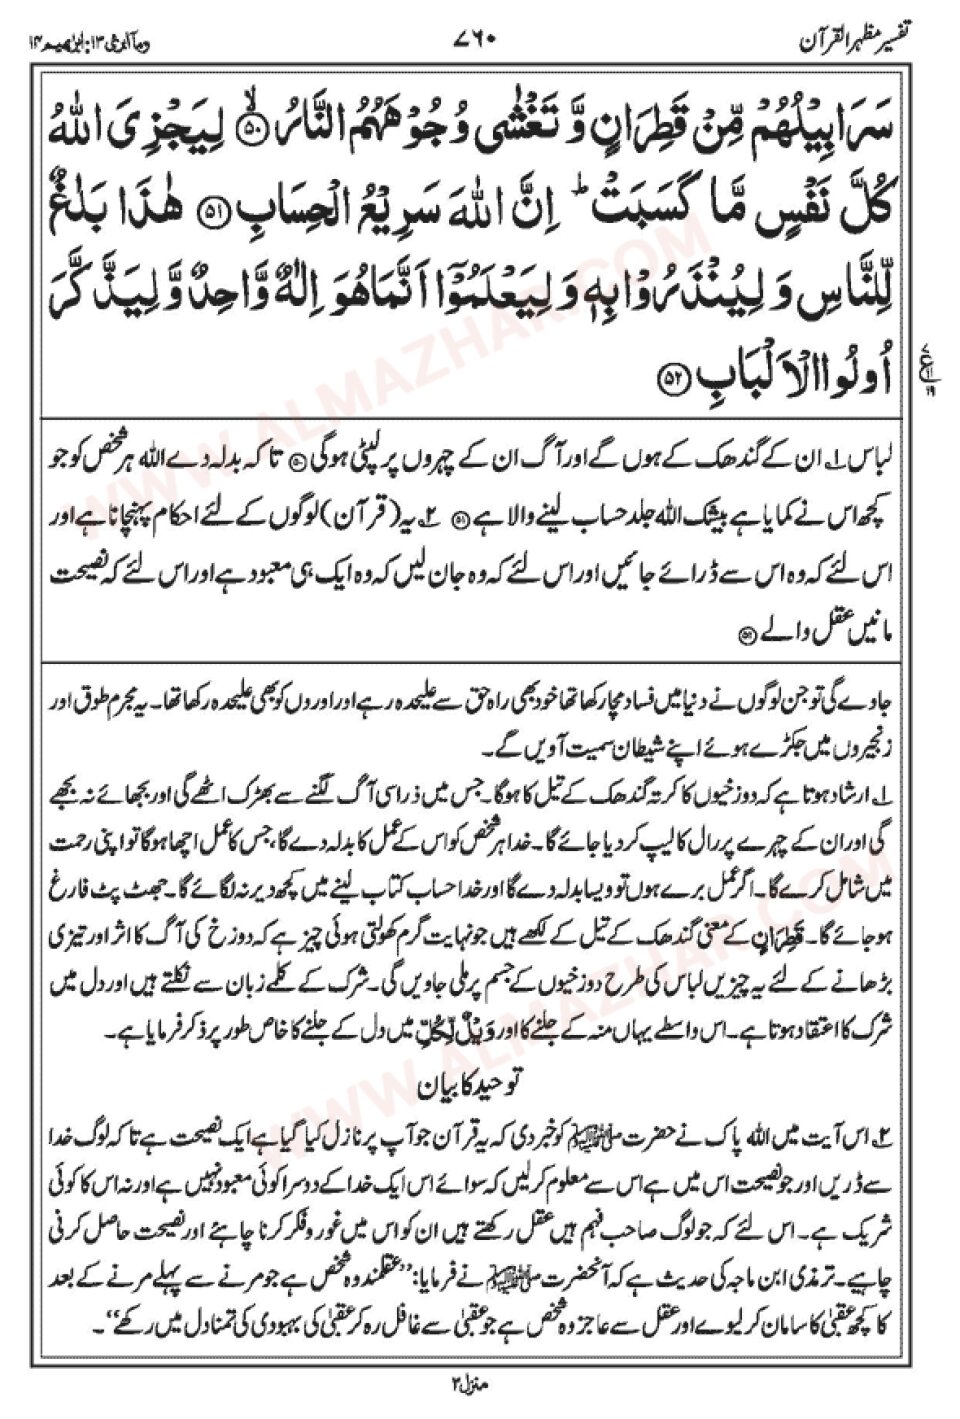 تفسیر مظہر القرآن
۷۶۰
وما ابرئ ۱۳: ابرٰھیم ۱۴
سَرَابِيْلُهُمْ مِّنْ قَطِرَانٍ وَّ تَغْشٰى وُجُوْهَهُمُ النَّارُ ﴿۵۰﴾ لِيَجْزِىَ اللّٰهُ
كُلَّ نَفْسٍ مَّا كَسَبَتْ ؕ اِنَّ اللّٰهَ سَرِيْعُ الْحِسَابِ ﴿۵۱﴾ هٰذَا بَلٰغٌ
لِّلنَّاسِ وَ لِيُنْذَرُوْا بِهٖ وَ لِيَعْلَمُوْۤا اَنَّمَا هُوَ اِلٰهٌ وَّاحِدٌ وَّ لِيَذَّكَّرَ
اُولُوا الْاَلْبَابِ ﴿۵۲﴾
ع
۷
۱۹
لباس ۱؎ ان کے گندھک کے ہوں گے اور آگ ان کے چہروں پر لپٹی ہوگی ﴿۵۰﴾ تاکہ بدلہ دے اللہ ہر شخص کو جو
کچھ اس نے کمایا ہے بیشک اللہ جلد حساب لینے والا ہے ﴿۵۱﴾ ۲؎ یہ (قرآن) لوگوں کے لئے احکام پہنچانا ہے اور
اس لئے کہ وہ اس سے ڈرائے جائیں اور اس لئے کہ وہ جان لیں کہ وہ ایک ہی معبود ہے اور اس لئے کہ نصیحت
مانیں عقل والے ﴿۵۲﴾
جاوے گی تو جن لوگوں نے دنیا میں فساد مچا رکھا تھا خود بھی راہ حق سے علیحدہ رہے اور اوروں کو بھی علیحدہ رکھا تھا۔ یہ مجرم طوق اور
زنجیروں میں جکڑے ہوئے اپنے شیطان سمیت آویں گے۔
۱؎ ارشاد ہوتا ہے کہ دوزخیوں کا کرتہ گندھک کے تیل کا ہوگا۔ جس میں ذرا سی آگ لگنے سے بھڑک اٹھے گی اور بجھائے نہ بجھے
گی اور ان کے چہرے پر رال کا لیپ کر دیا جائے گا۔ خدا ہر شخص کو اس کے عمل کا بدلہ دے گا، جس کا عمل اچھا ہوگا تو اپنی رحمت
میں شامل کرے گا۔ اگر عمل برے ہوں تو ویسا بدلہ دے گا اور خدا حساب کتاب لینے میں کچھ دیر نہ لگائے گا۔ جھٹ پٹ فارغ
ہو جائے گا۔ قَطِرَانٍ کے معنی گندھک کے تیل کے لکھے ہیں جو نہایت گرم کھولتی ہوئی چیز ہے کہ دوزخ کی آگ کا اثر اور تیزی
بڑھانے کے لئے یہ چیزیں لباس کی طرح دوزخیوں کے جسم پر ملی جاویں گی۔ شرک کے کلمے زبان سے نکلتے ہیں اور دل میں
شرک کا اعتقاد ہوتا ہے۔ اس واسطے یہاں منہ کے جلنے کا اور وَيْلٌ لِّكُلِّ میں دل کے جلنے کا خاص طور پر ذکر فرمایا ہے۔
توحید کا بیان
۲؎ اس آیت میں اللہ پاک نے حضرت ﷺ کو خبر دی کہ یہ قرآن جو آپ پر نازل کیا گیا ہے ایک نصیحت ہے تاکہ لوگ خدا
سے ڈریں اور جو نصیحت اس میں ہے اس سے معلوم کر لیں کہ سوائے اس ایک خدا کے دوسرا کوئی معبود نہیں ہے اور نہ اس کا کوئی
شریک ہے۔ اس لئے کہ جو لوگ صاحب فہم ہیں عقل رکھتے ہیں ان کو اس میں غور و فکر کرنا چاہئے اور نصیحت حاصل کرنی
چاہیے۔ ترمذی ابن ماجہ کی حدیث ہے کہ آنحضرت ﷺ نے فرمایا: ”عقلمند وہ شخص ہے جو مرنے سے پہلے مرنے کے بعد
کا کچھ عقبیٰ کا سامان کر لیوے اور عقل سے عاجز وہ شخص ہے جو عقبیٰ سے غافل رہ کر عقبیٰ کی بہبودی کی تمنا دل میں رکھے“۔
منزل ۲
WWW.ALMAZHAR.COM
WWW.ALMAZHAR.COM